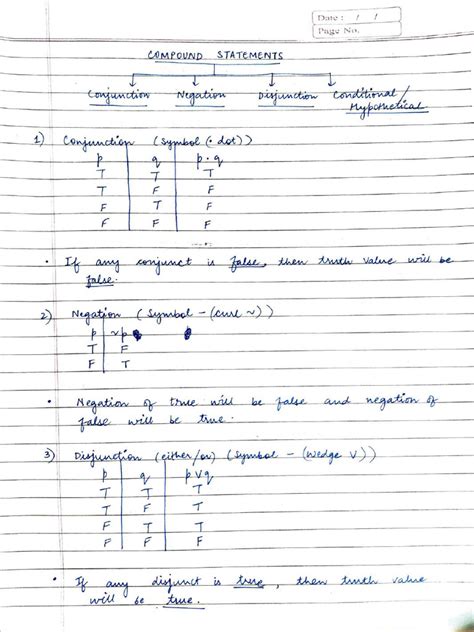 Date : / /
Page No.
COMPOUND STATEMENTS
Conjunction Negation Disjunction Conditional /
Hypothetical
1) Conjunction (Symbol (• dot))
p q p . q
T T T
T F F
F T F
F F F
• If any conjunct is false, then truth value will be
false.
2) Negation (Symbol - (curl ~))
p ~p
T F
F T
• Negation of true will be false and negation of
false will be true.
3) Disjunction (either/or) (Symbol - (Wedge V))
p q p v q
T T T
T F T
F T T
F F F
• If any disjunct is true, then truth value
will be true.